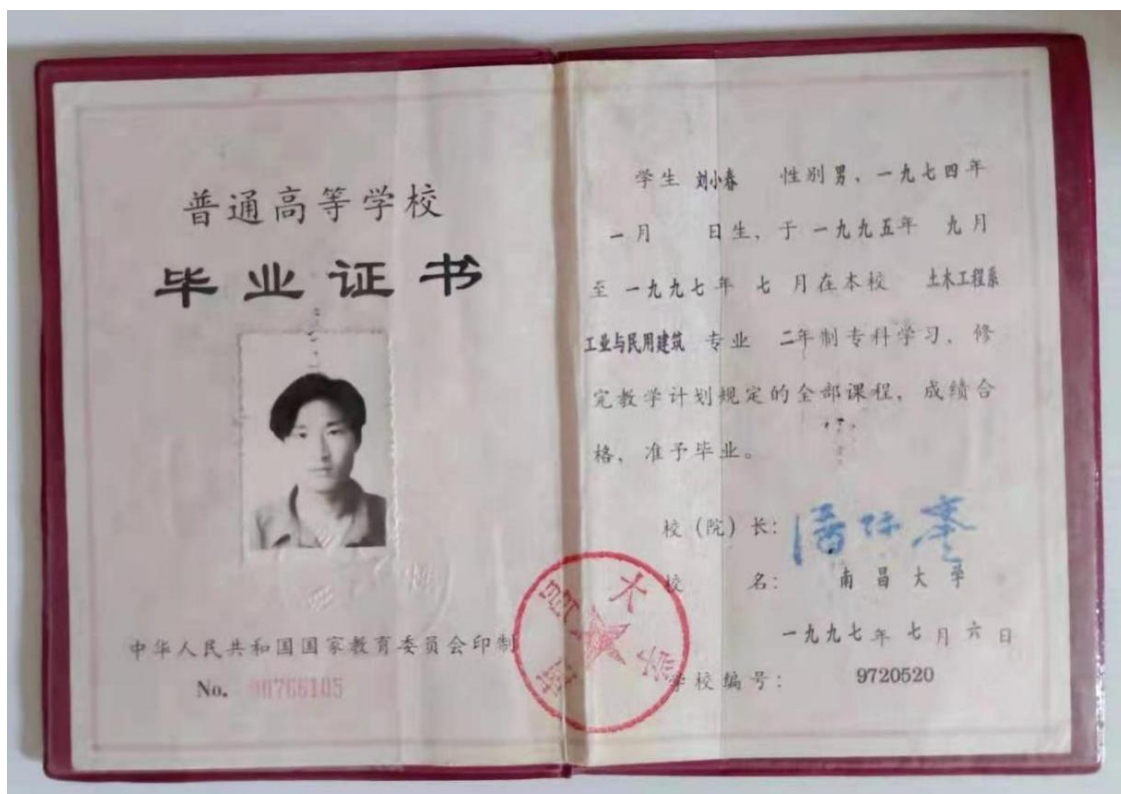 普通高等学校
毕业证书
中华人民共和国国家教育委员会印制
No. 90766105
学生 刘小春 性别男、一九七四年
一月 日生、于一九九五年 九月
至 一九九七年 七 月在本校 土木工程系
工业与民用建筑 专业 二年制专科学习、修
完教学计划规定的全部课程，成绩合
格，准予毕业。
校（院）长：
校 名： 南昌大学
一九九七年七月六日
学校编号： 9720520
南昌大学